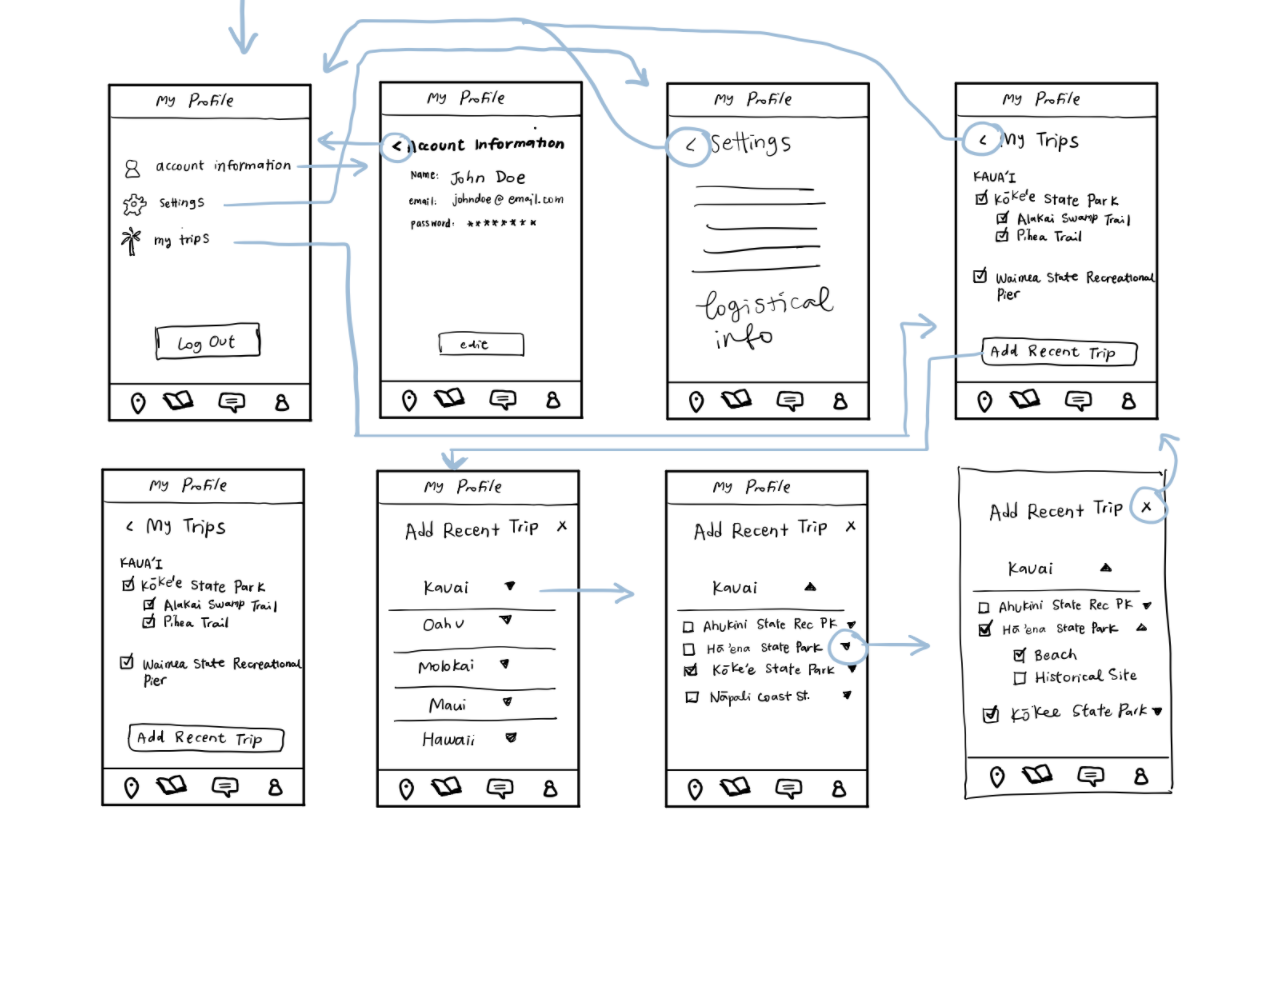 My Profile
account information
Settings
my trips
Log Out
My Profile
< Account Information
Name: John Doe
email: johndoe@email.com
password: ********
edit
My Profile
< Settings
logistical
info
My Profile
< My Trips
KAUA'I
Kōke'e State Park
Alakai Swamp Trail
Pihea Trail
Waimea State Recreational
Pier
Add Recent Trip
My Profile
< My Trips
KAUA'I
Kōke'e State Park
Alakai Swamp Trail
Pihea Trail
Waimea State Recreational
Pier
Add Recent Trip
My Profile
Add Recent Trip x
Kauai
Oahu
Molokai
Maui
Hawaii
My Profile
Add Recent Trip x
Kauai
Ahukini State Rec PK
Hā'ena State Park
Kōke'e State Park
Nāpali Coast St.
Add Recent Trip x
Kauai
Ahukini State Rec PK
Hā'ena State Park
Beach
Historical Site
Kōkee State Park